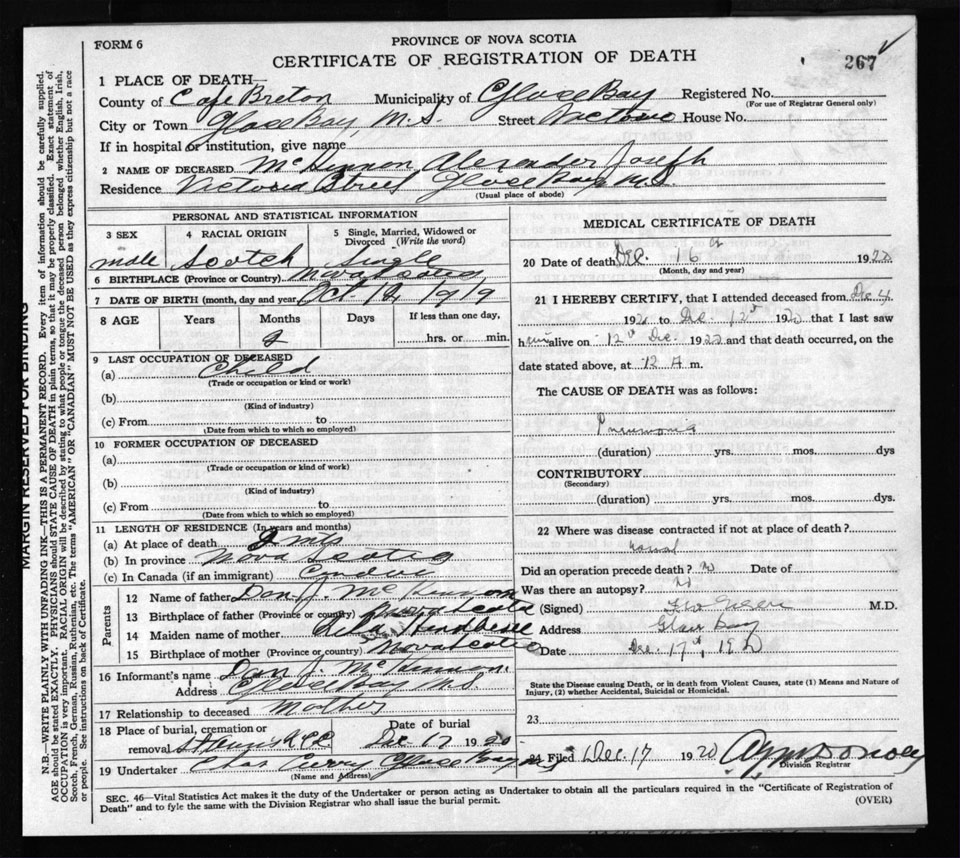 FORM 6
PROVINCE OF NOVA SCOTIA
CERTIFICATE OF REGISTRATION OF DEATH
267
1 PLACE OF DEATH
County of Cape Breton Municipality of Glace Bay Registered No.
(For use of Registrar General only)
City or Town Glace Bay, N.S. Street Victoria House No.
If in hospital or institution, give name
2 NAME OF DECEASED McKinnon, Alexander Joseph
Residence Victoria Street Glace Bay N.S.
(Usual place of abode)
MARGIN RESERVED FOR BINDING
N.B.—WRITE PLAINLY WITH UNFADING INK—THIS IS A PERMANENT RECORD. Every item of information should be carefully supplied.
AGE should be stated EXACTLY. PHYSICIANS should STATE CAUSE OF DEATH in plain terms, so that it may be properly classified. Exact statement of
OCCUPATION is very important. RACIAL ORIGIN will be described by stating to what people or tongue the deceased person belonged whether English, Irish,
Scotch, French, German, Russian, Ruthenian, etc. The terms "AMERICAN" OR "CANADIAN" MUST NOT BE USED as they express citizenship but not a race
or people. See instructions on back of Certificate.
PERSONAL AND STATISTICAL INFORMATION
3 SEX 4 RACIAL ORIGIN 5 Single, Married, Widowed or
Divorced (Write the word)
male Scotch Single
6 BIRTHPLACE (Province or Country) Nova Scotia
7 DATE OF BIRTH (month, day and year) Oct.
8 AGE Years Months Days If less than one day,
2 hrs. or min.
9 LAST OCCUPATION OF DECEASED
(a) Child
(Trade or occupation or kind or work)
(b)
(Kind of industry)
(c) From to
(Date from which to which so employed)
10 FORMER OCCUPATION OF DECEASED
(a)
(Trade or occupation or kind of work)
(b)
(Kind of industry)
(c) From to
(Date from which to which so employed)
11 LENGTH OF RESIDENCE (In years and months)
(a) At place of death
(b) In province Nova Scotia
(c) In Canada (if an immigrant)
Parents
12 Name of father Dan J. McKinnon
13 Birthplace of father (Province or country) Nova Scotia
14 Maiden name of mother
15 Birthplace of mother (Province or country) Nova Scotia
16 Informant's name Dan J. McKinnon
Address Glace Bay N.S.
17 Relationship to deceased
18 Place of burial, cremation or Date of burial
removal Dec 17 1920
19 Undertaker Chas Curry Glace Bay
(Name and Address)
MEDICAL CERTIFICATE OF DEATH
20 Date of death Dec. 16 192
(Month, day and year)
21 I HEREBY CERTIFY, that I attended deceased from Dec 4
1920 to Dec. 12th 1920 that I last saw
h alive on 12th Dec. 19 and that death occurred, on the
date stated above, at 12 A m.
The CAUSE OF DEATH was as follows:
Pneumonia
(duration) yrs. mos. dys
CONTRIBUTORY
(Secondary)
(duration) yrs. mos. dys.
22 Where was disease contracted if not at place of death?
Did an operation precede death? No Date of
Was there an autopsy? No
(Signed) M.D.
Address Glace Bay
Date Dec. 17th, 1920
State the Disease causing Death, or in death from Violent Causes, state (1) Means and Nature of
Injury, (2) whether Accidental, Suicidal or Homicidal.
23
24 Filed Dec. 17 1920
Division Registrar
SEC. 46—Vital Statistics Act makes it the duty of the Undertaker or person acting as Undertaker to obtain all the particulars required in the "Certificate of Registration of
Death" and to fyle the same with the Division Registrar who shall issue the burial permit. (OVER)